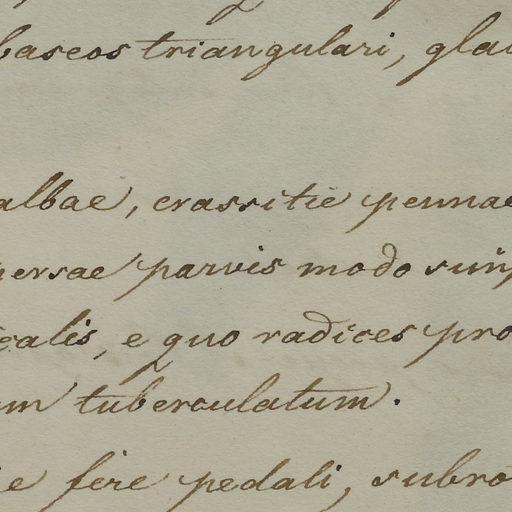 baseos triangulari, glau
albae, crassitie pennae
versae parvis modo sun̄p
calis, e quo radices pro
um tuberculatum.
e fere pedali, subro